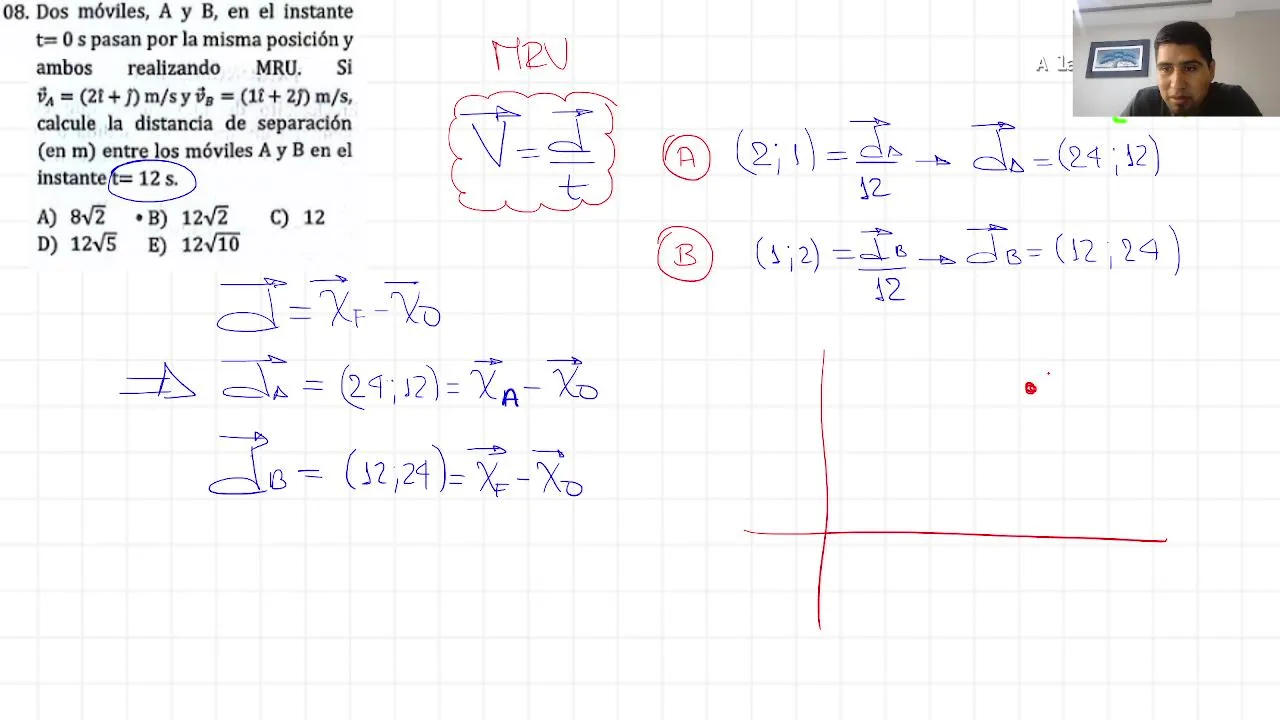 08. Dos móviles, A y B, en el instante
t= 0 s pasan por la misma posición y
ambos realizando MRU. Si
v⃗_A = (2î + ĵ) m/s y v⃗_B = (1î + 2ĵ) m/s,
calcule la distancia de separación
(en m) entre los móviles A y B en el
instante t= 12 s.
A) 8√2 • B) 12√2 C) 12
D) 12√5 E) 12√10
MRU
V⃗ = d⃗/t
A la
A (2;1) = d⃗_A/12 → d⃗_A = (24;12)
B (1;2) = d⃗_B/12 → d⃗_B = (12;24)
d⃗ = x⃗_F − x⃗_0
⇒ d⃗_A = (24;12) = x⃗_A − x⃗_0
d⃗_B = (12;24) = x⃗_F − x⃗_0